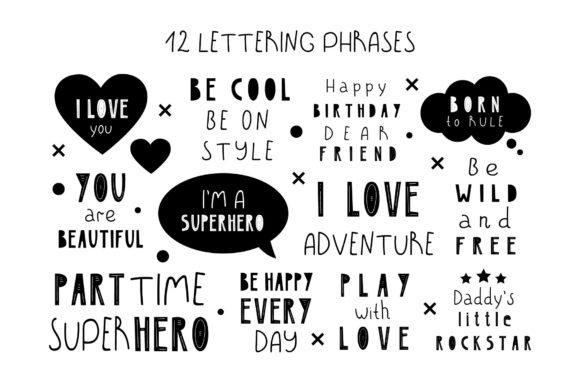 12 LETTERING PHRASES
I LOVE
you
BE COOL
BE ON
STYLE
Happy
BIRTHDAY
DEAR
FRIEND
BORN
to RULE
YOU
are
BEAUTIFUL
I'M A
SUPERHERO
I LOVE
ADVENTURE
Be
WILD
and
FREE
PART TIME
SUPERHERO
BE HAPPY
EVERY
DAY
PLAY
with
LOVE
Daddy's
little
ROCKSTAR